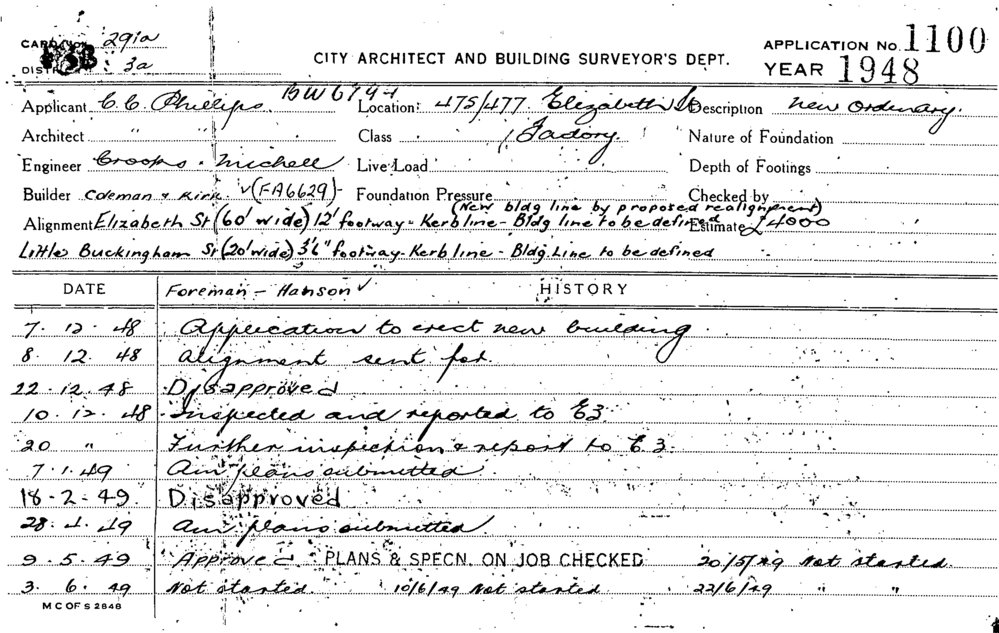 CARD No. 291a
DISTRICT 3a
CITY ARCHITECT AND BUILDING SURVEYOR'S DEPT.
APPLICATION No. 1100
YEAR 1948
Applicant C. C. Phillips BW6794 Location: 475/477 Elizabeth St Description New Ordinary.
Architect " " Class 1 Factory. Nature of Foundation
Engineer Crooks. Michell Live Load Depth of Footings
Builder Coleman & Kirk √(FA6629) Foundation Pressure Checked by
(New bldg line by proposed realignment)
Alignment Elizabeth St (60' wide) 12' footway - Kerb line - Bldg line to be defined Estimate £4000
Little Buckingham St (20' wide) 3'6" footway - Kerb line - Bldg. Line to be defined
DATE Foreman - Hanson √ HISTORY
7. 12. 48 Application to erect new building.
8. 12. 48 Alignment sent for.
22. 12. 48 Disapproved
10. 12. 48 Inspected and reported to E3.
20 " Further inspection & report to E.3.
7. 1. 49 Am plans submitted.
18-2-49 Disapproved
28. 4. 49 Am plans submitted
9. 5. 49 Approved PLANS & SPECN. ON JOB CHECKED 20/5/49 Not started.
3. 6. 49 Not started. 10/6/49 Not started. 22/6/49 " "
M C OF S 2848